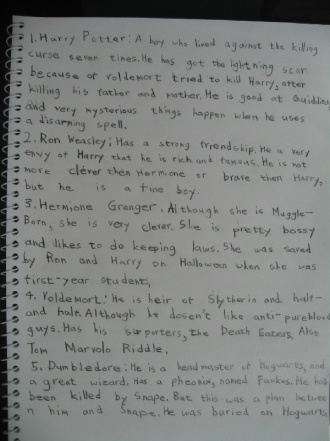 1. Harry Potter: A boy who lived against the killing
curse seven times. He has got the lightning scar
because of voldemort tried to kill Harry, after
killing his father and mother. He is good at Quiddieg
and very mysterious things happen when he uses
a disarming spell.
2. Ron Weasley: Has a strong friendship. He a very
envy of Harry that he is rich and famous. He is not
more clever then Hermione or brave then Harry,
but he is a fine boy.
3. Hermione Granger. Although she is Muggle-
Born, she is very clever. She is pretty bossy
and likes to do keeping laws. She was saved
by Ron and Harry on Halloween when she was
first-year student,
4. Voldemort: He is heir of Slytherin and half-
and half. Although he doesn't like anti-pureblood
guys. Has his surporters, the Death Eaters, Also
Tom Marvolo Riddle.
5. Dumbledore: He is a headmaster of Hogwarts, and
a great wizard. Has a pheonix, named Fawkes. He has
been killed by Snape. But this was a plan betwee
n him and Snape. He was buried on Hogwarts